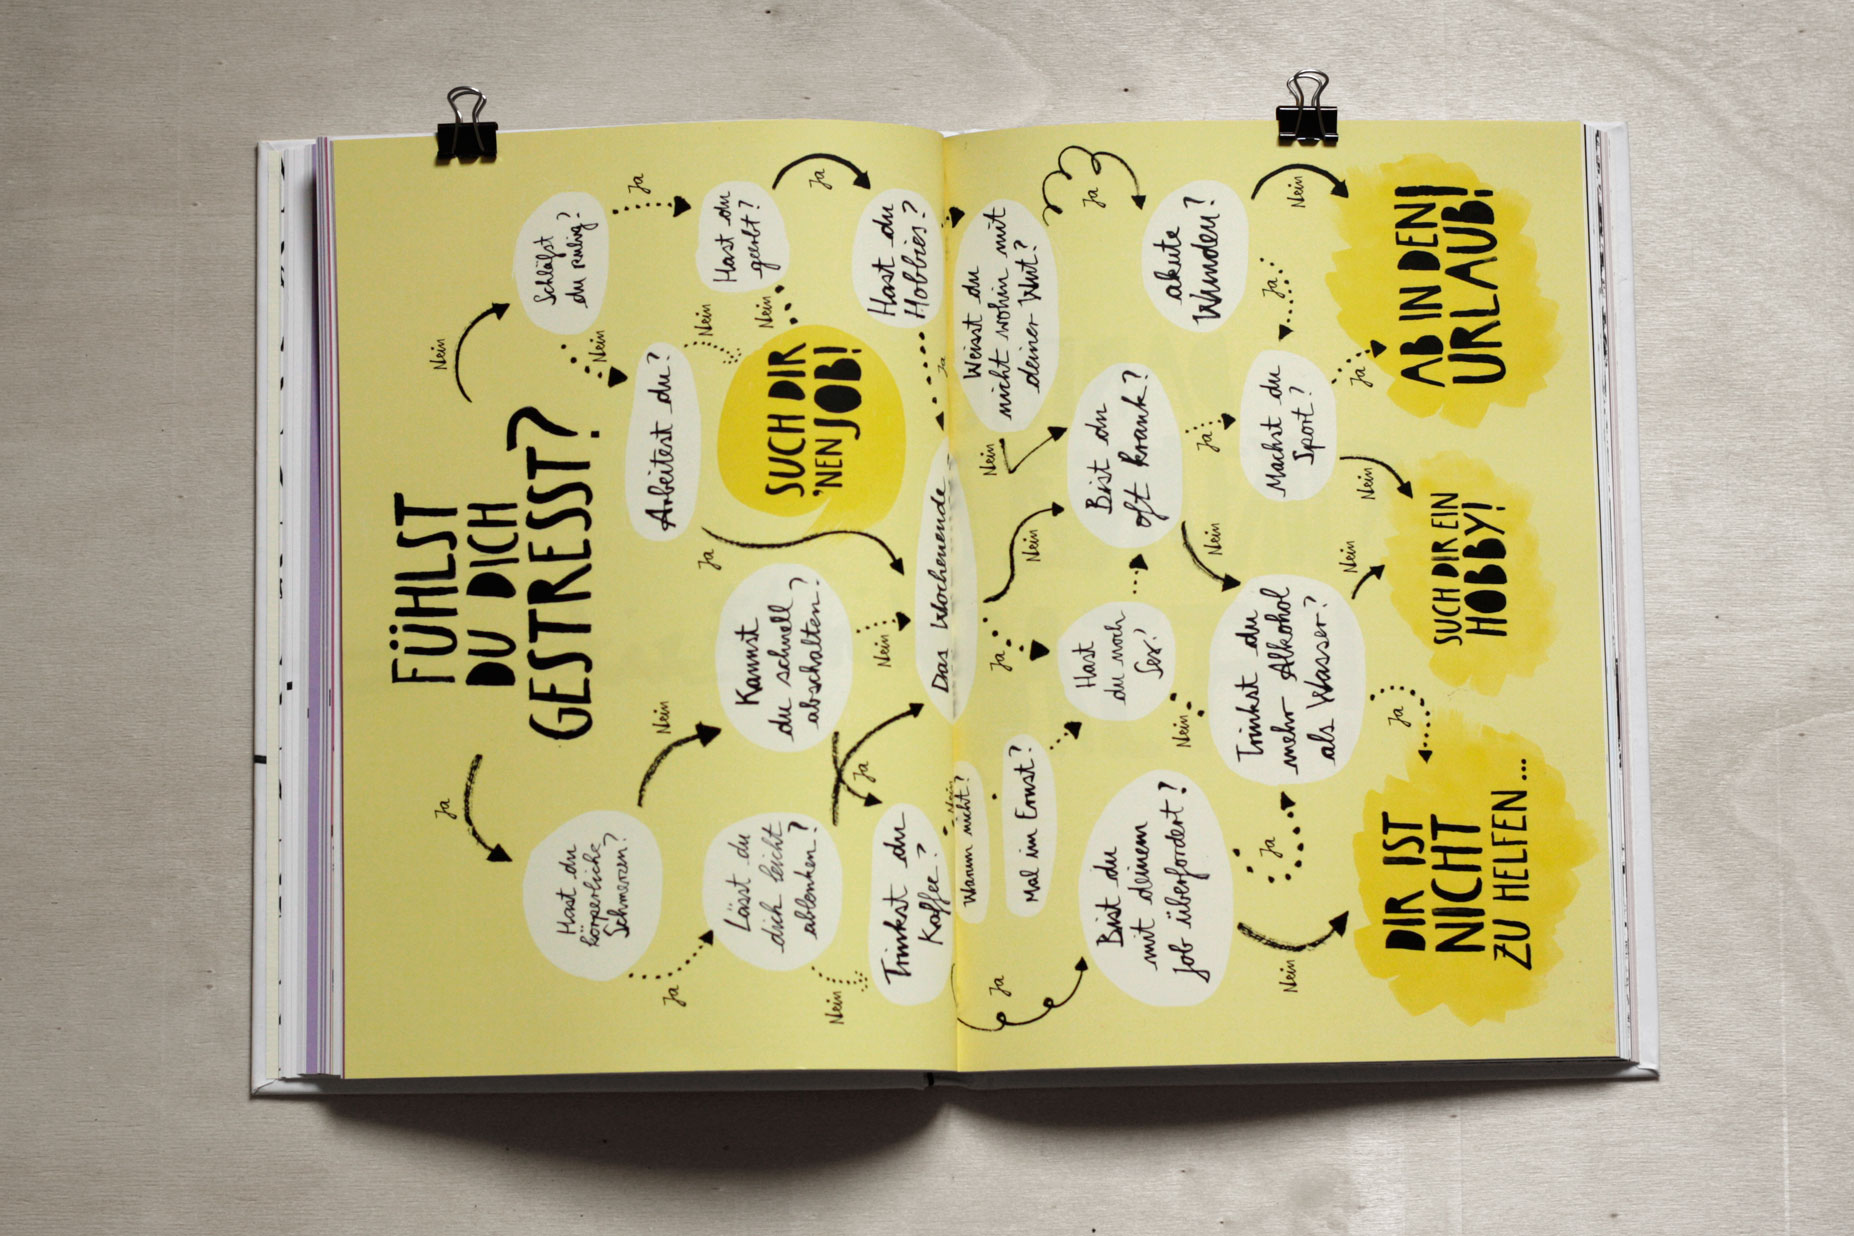 FÜHLST
DU DICH
GESTRESST?
Ja
Nein
Hast du
körperliche
Schmerzen?
Schläfst
du ruhig?
Ja
Nein
Nein
Ja
Lässt du
dich leicht
ablenken?
Kannst
du schnell
abschalten?
Arbeitest du?
Hast du
geerbt?
Nein
Ja
Nein
Ja
Nein
Nein
Ja
SUCH DIR
'NEN JOB!
Trinkst du
Kaffee?
Das Wochenende
Hast du
Hobbies?
Nein
Ja
Warum nicht?
Mal im Ernst?
Weisst du
nicht wohin mit
deiner Wut?
Ja
Ja
Nein
Nein
Ja
Bist du
mit deinem
Job überfordert?
Hast
du noch
Sex?
Bist du
oft krank?
akute
Wunden?
Nein
Nein
Ja
Ja
Nein
Trinkst du
mehr Alkohol
als Wasser?
Machst du
Sport?
Nein
Ja
Ja
Nein
Nein
Ja
DIR IST
NICHT
ZU HELFEN...
SUCH DIR EIN
HOBBY!
AB IN DEN
URLAUB!